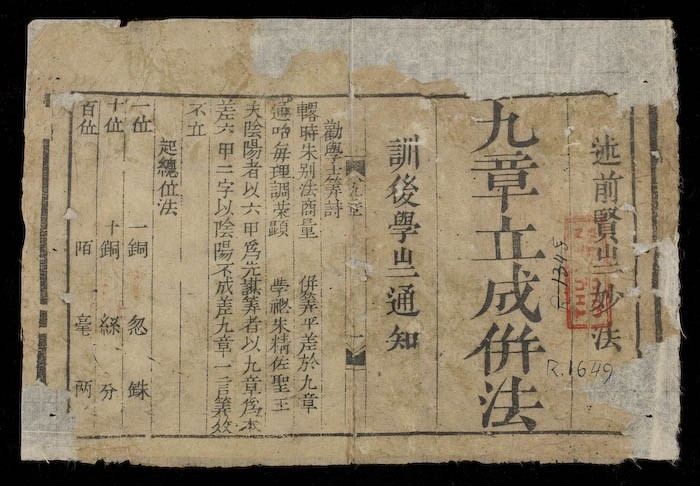 述前賢㞢妙法
九章立成併法
訓後學㞢通知
勸學士筭詩
時朱别法商量 併筭平差於九章
通哈每理調萊顕 學祕朱精佐聖王
夫陰陽者以六甲爲先謀筭者以九章爲本
差六甲二字以陰陽不成差九章一言筭效
不立
起總位法
一位 一銅 忽 銖
十位 十銅 絲 分
百位 陌 毫 两
R.1345
R.1649